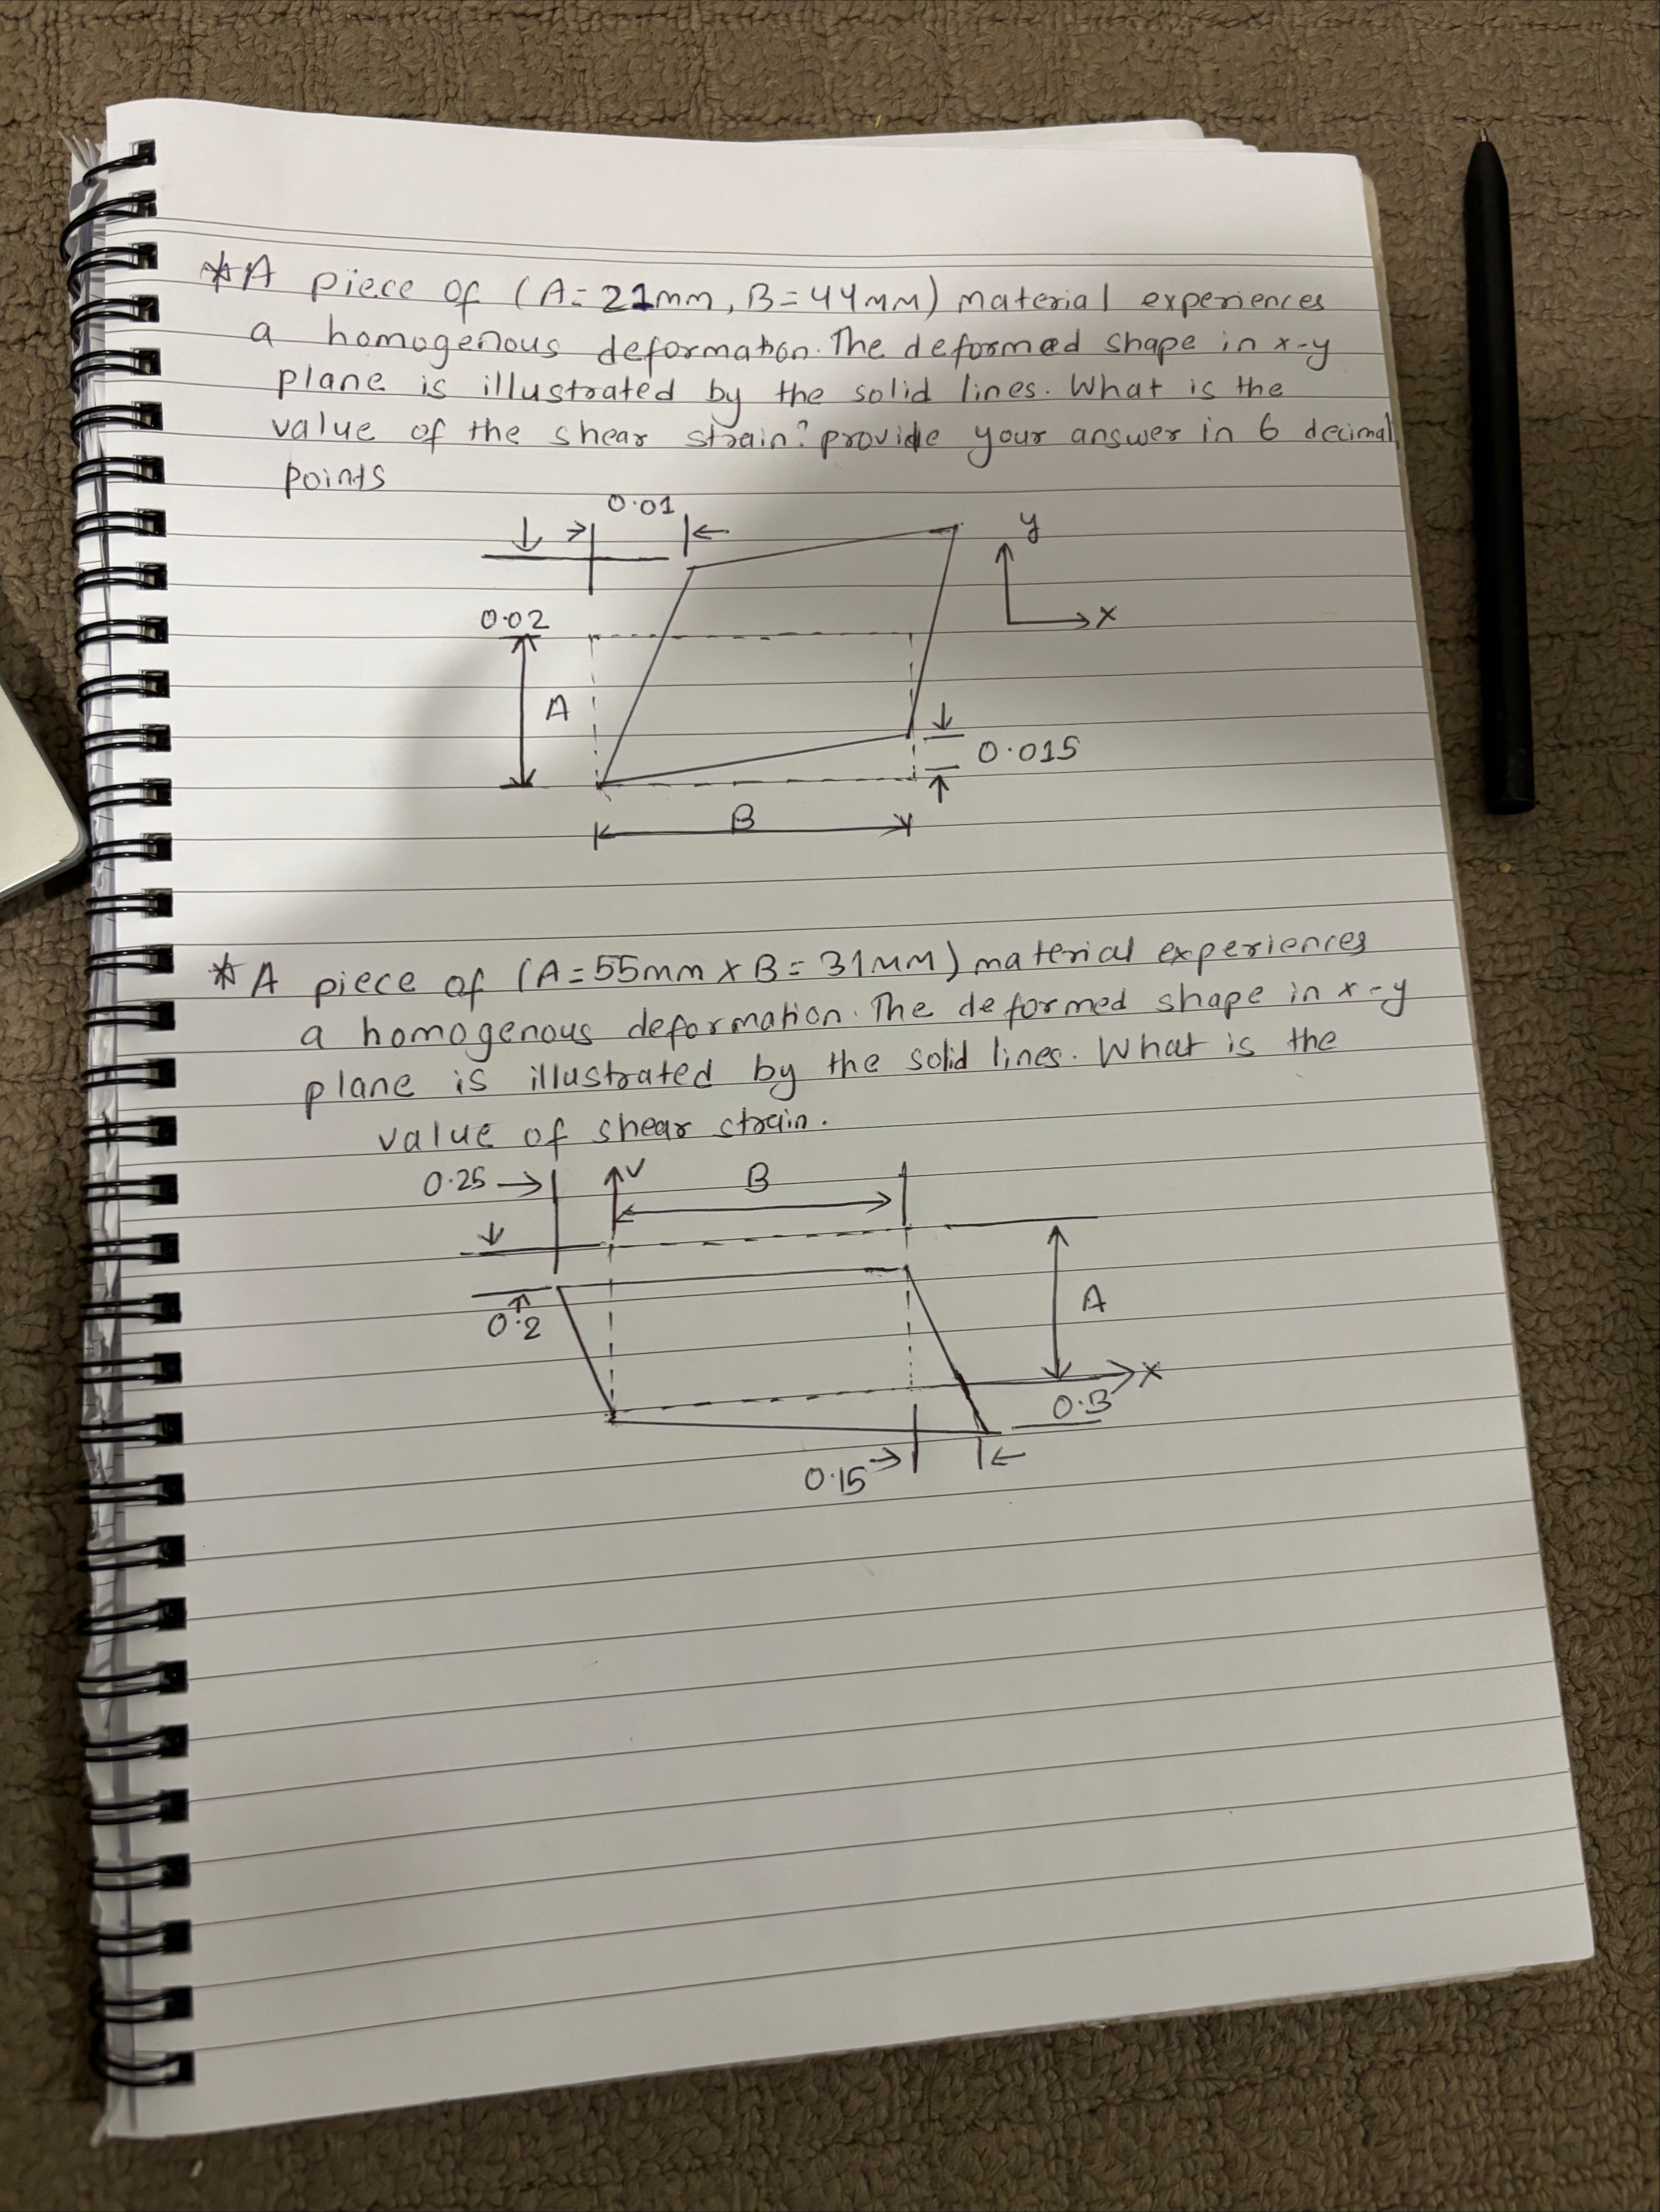 *A piece of (A=21mm, B=44mm) material experiences
a homogenous deformation. The deformed shape in x-y
plane is illustrated by the solid lines. What is the
value of the shear strain? provide your answer in 6 decimal
points
0.01
y
x
0.02
A
0.015
B
*A piece of (A=55mm x B=31mm) material experiences
a homogenous deformation. The deformed shape in x-y
plane is illustrated by the solid lines. What is the
value of shear strain.
0.25
B
A
0.2
x
0.3
0.15